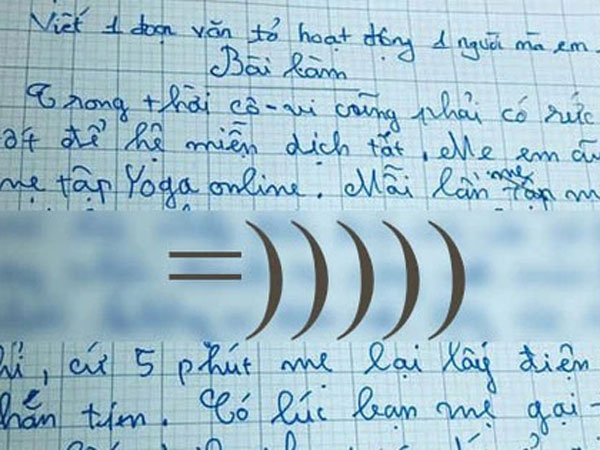 Viết 1 đoạn văn tả hoạt động 1 người mà em
Bài làm
Trong thời cô-vi cũng phải có sức
để hệ miễn dịch tốt. Mẹ em
mẹ tập Yoga online. Mỗi lần mẹ tập m
=)))))
, cứ 5 phút mẹ lại lấy điện
nhắn tin. Có lúc bạn mẹ gọi